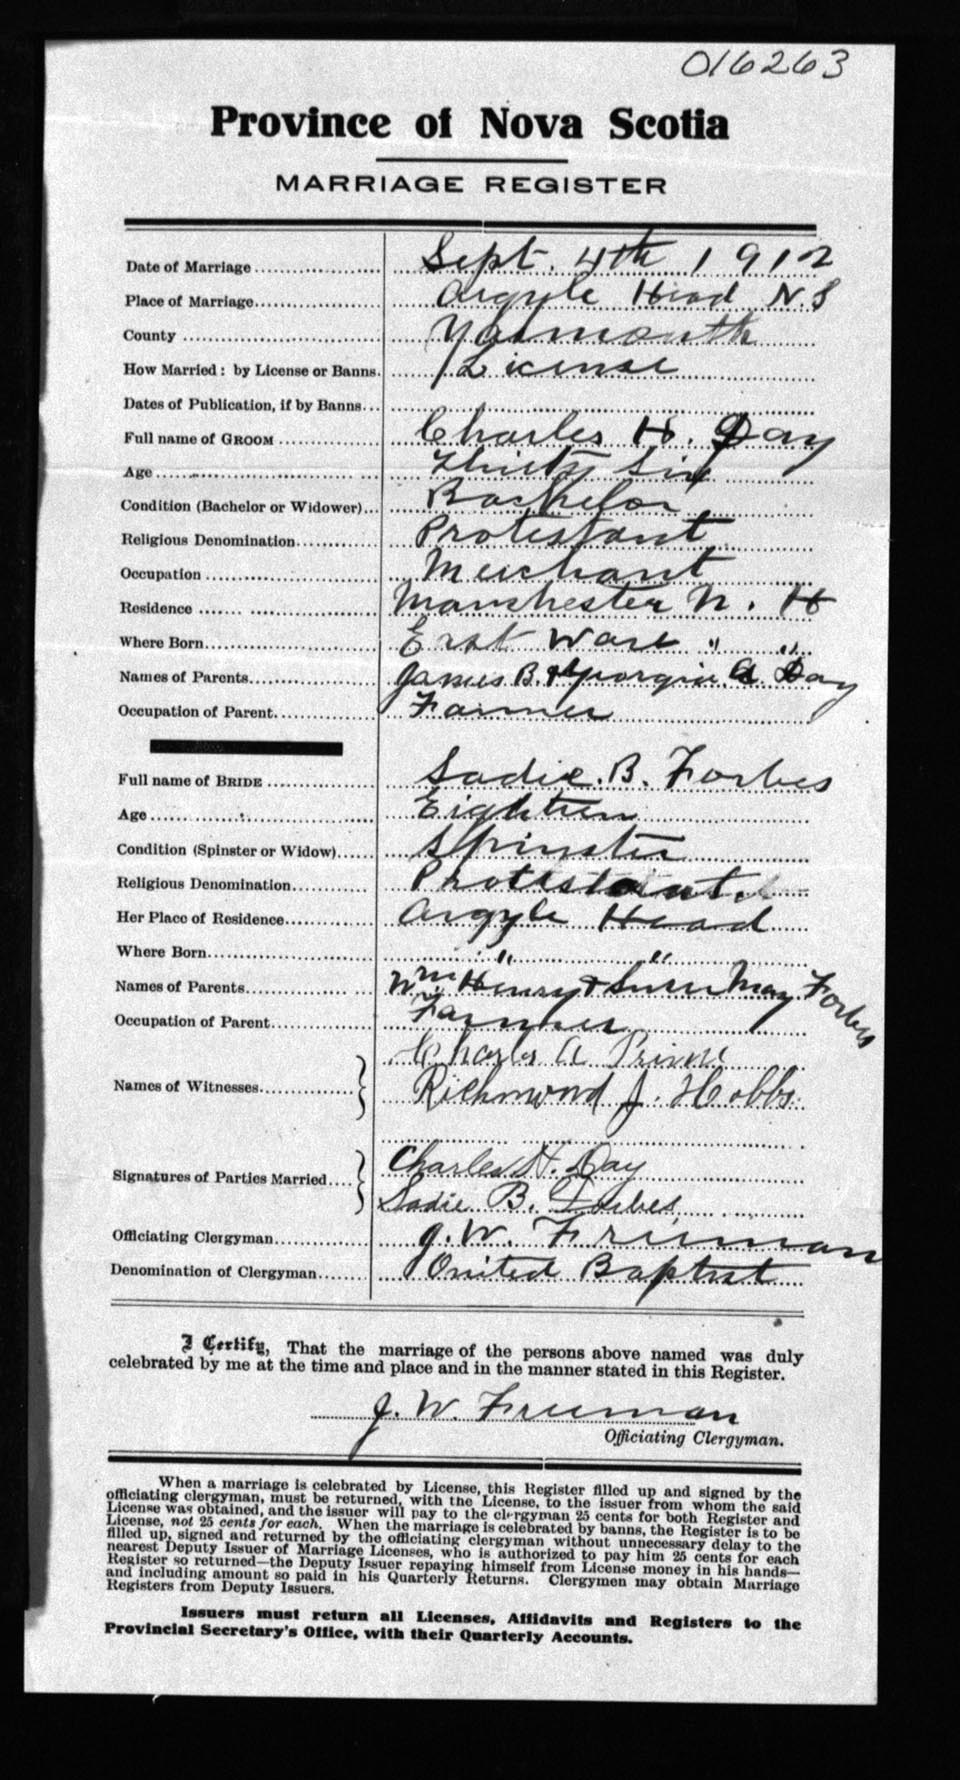 016263
Province of Nova Scotia
MARRIAGE REGISTER
Date of Marriage Sept. 4th 1912
Place of Marriage Argyle Head N.S
County Yarmouth
How Married: by License or Banns. License
Dates of Publication, if by Banns
Full name of GROOM Charles H. Day
Age Thirty Six
Condition (Bachelor or Widower) Bachelor
Religious Denomination Protestant
Occupation Merchant
Residence Manchester N. H
Where Born East Ware " "
Names of Parents James B. & Georgia A. Day
Occupation of Parent Farmer
Full name of BRIDE Sadie. B. Forbes
Age Eighteen
Condition (Spinster or Widow) Spinster
Religious Denomination Protestant.
Her Place of Residence Argyle Head
Where Born " "
Names of Parents Wm Henry & Susan May Forbes
Occupation of Parent Farmer
Charles A
Names of Witnesses Richmond J. Hobbs
Charles H. Day
Signatures of Parties Married
Sadie B. Forbes
Officiating Clergyman J. W. Freeman
Denomination of Clergyman United Baptist
I Certify, That the marriage of the persons above named was duly
celebrated by me at the time and place and in the manner stated in this Register.
J. W. Freeman
Officiating Clergyman.
When a marriage is celebrated by License, this Register filled up and signed by the
officiating clergyman, must be returned, with the License, to the issuer from whom the said
License was obtained, and the issuer will pay to the clergyman 25 cents for both Register and
License, not 25 cents for each. When the marriage is celebrated by banns, the Register is to be
filled up, signed and returned by the officiating clergyman without unnecessary delay to the
nearest Deputy Issuer of Marriage Licenses, who is authorized to pay him 25 cents for each
Register so returned—the Deputy Issuer repaying himself from License money in his hands—
and including amount so paid in his Quarterly Returns. Clergymen may obtain Marriage
Registers from Deputy Issuers.
Issuers must return all Licenses, Affidavits and Registers to the
Provincial Secretary's Office, with their Quarterly Accounts.